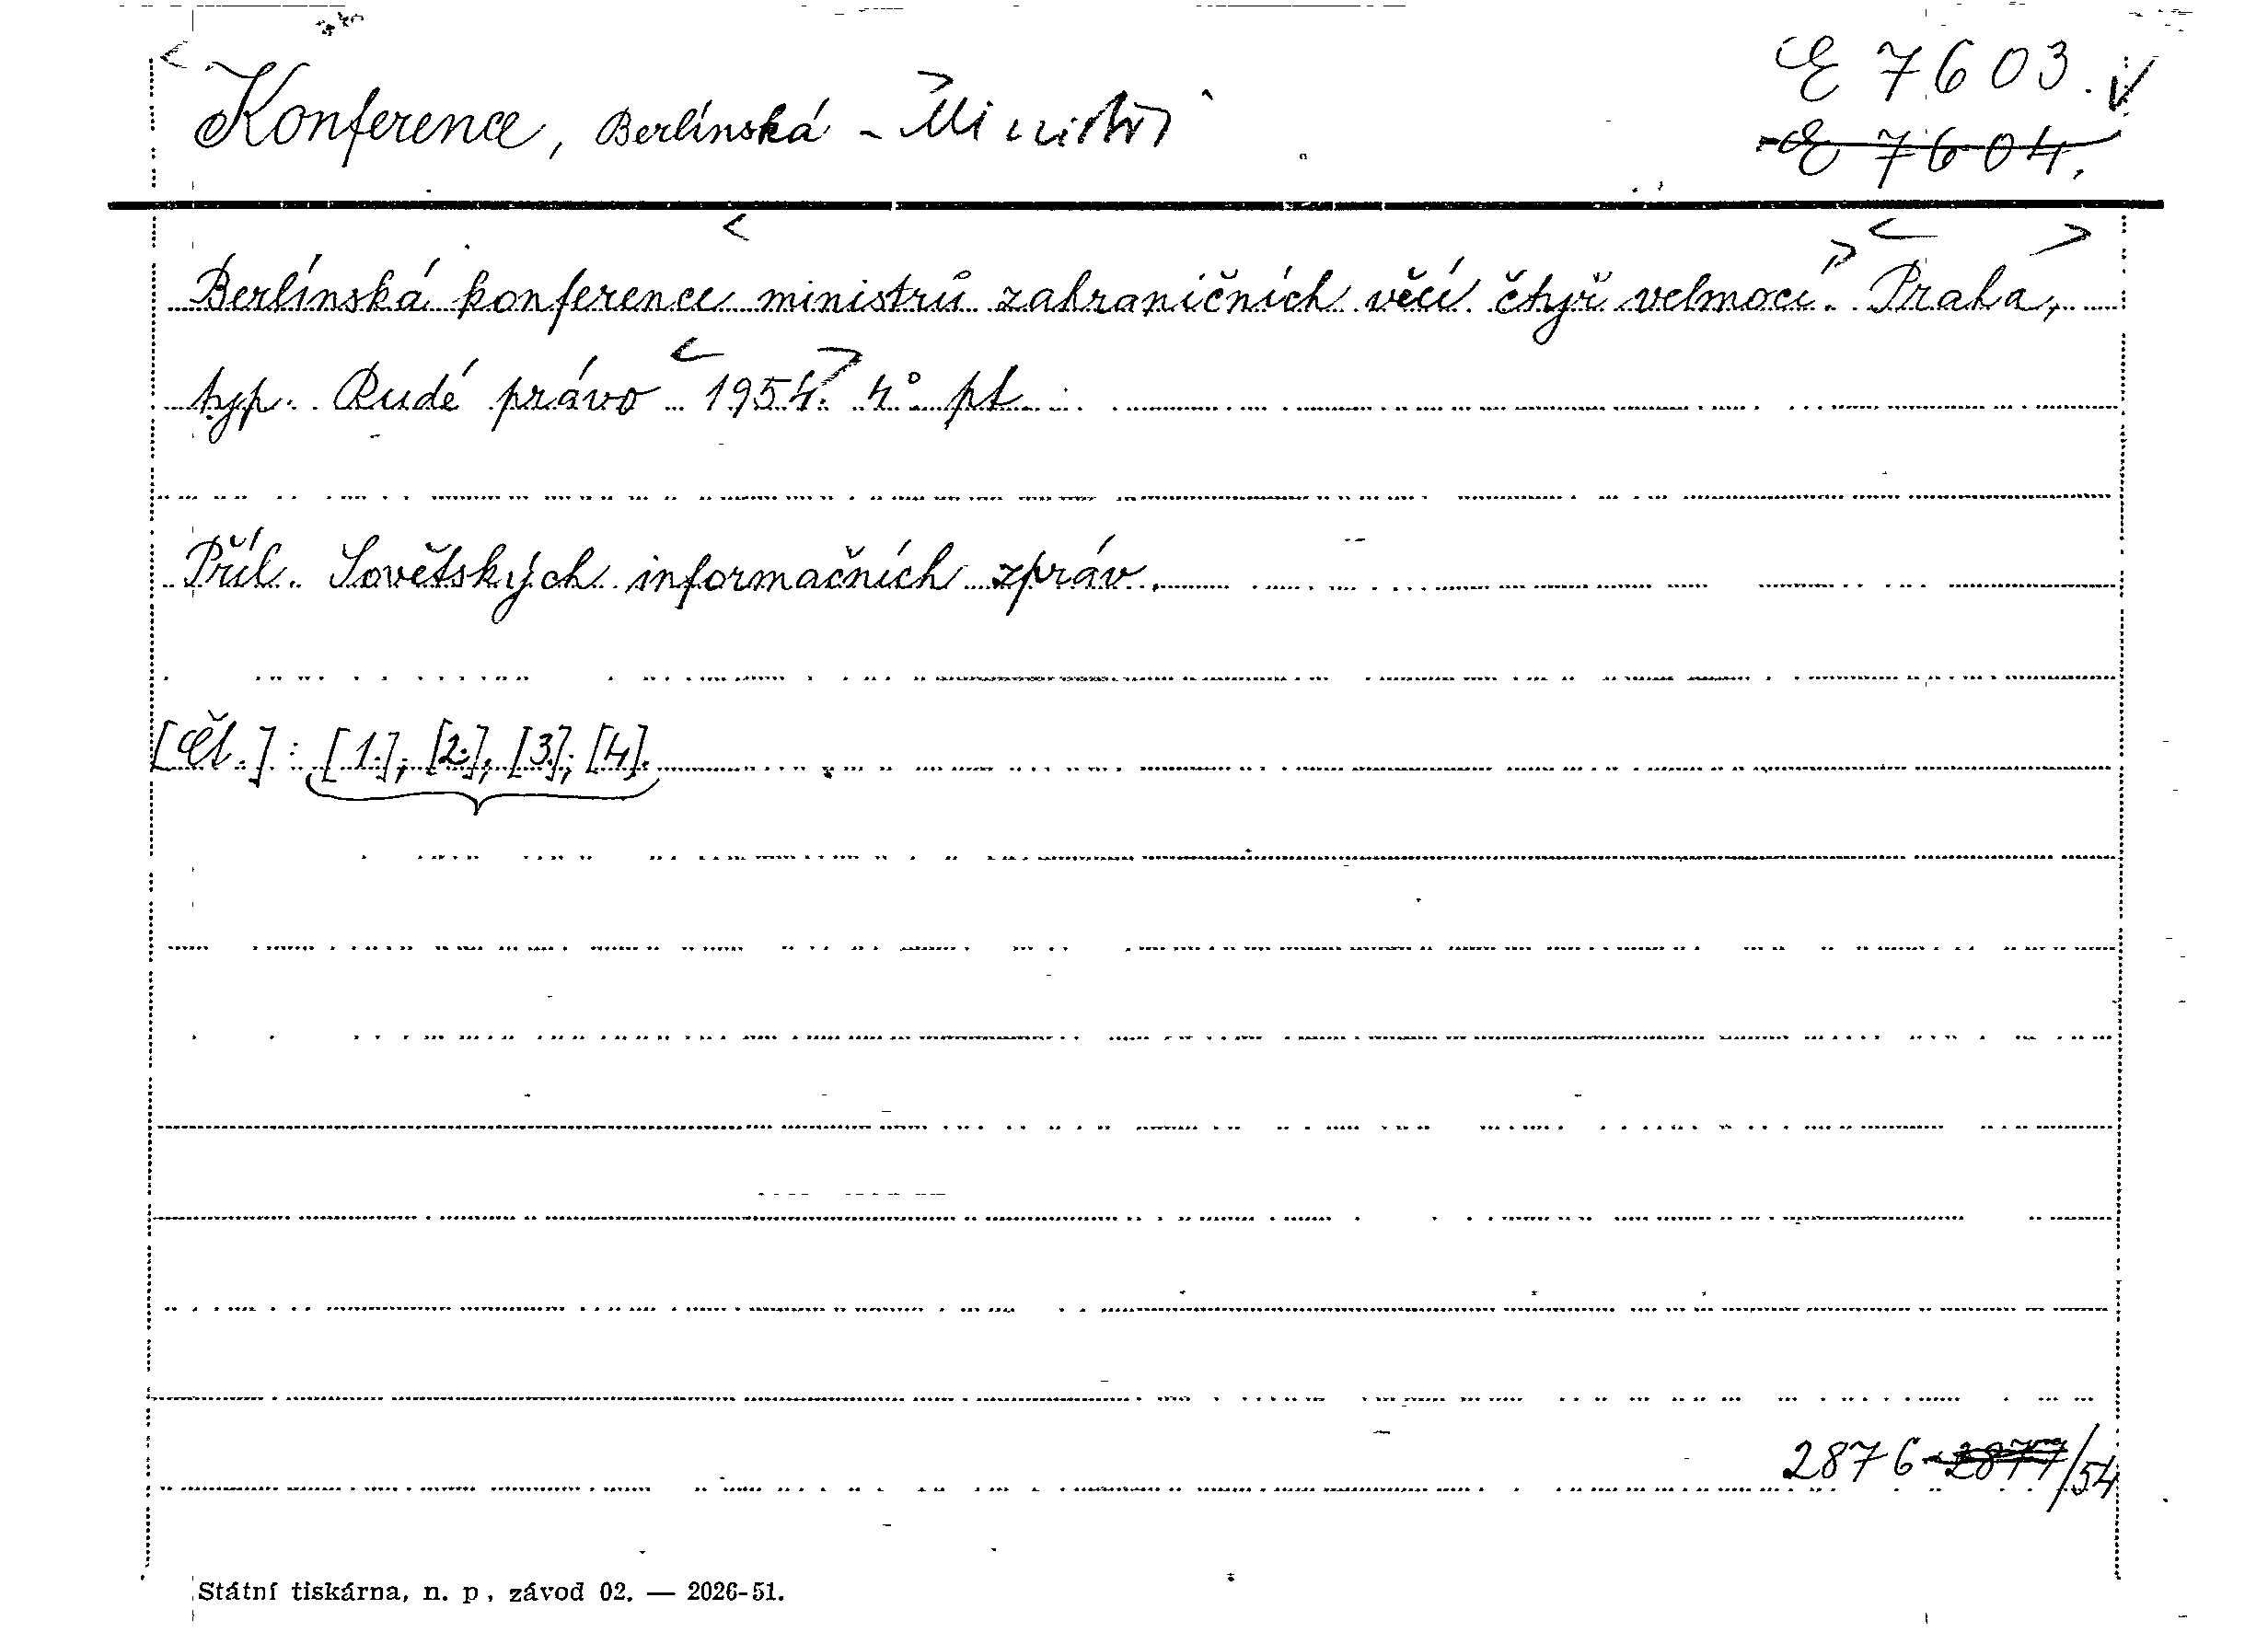 E 7603.
Konference, Berlínská - Ministři
E 7604.
Berlínská konference ministrů zahraničních věcí čtyř velmocí. Praha,
typ. Rudé právo 1954. 4° pt.
Příl. Sovětských informačních zpráv.
[Čl.]: [1.]; [2.]; [3.]; [4].
2876-2877/54
Státní tiskárna, n. p., závod 02. — 2026-51.